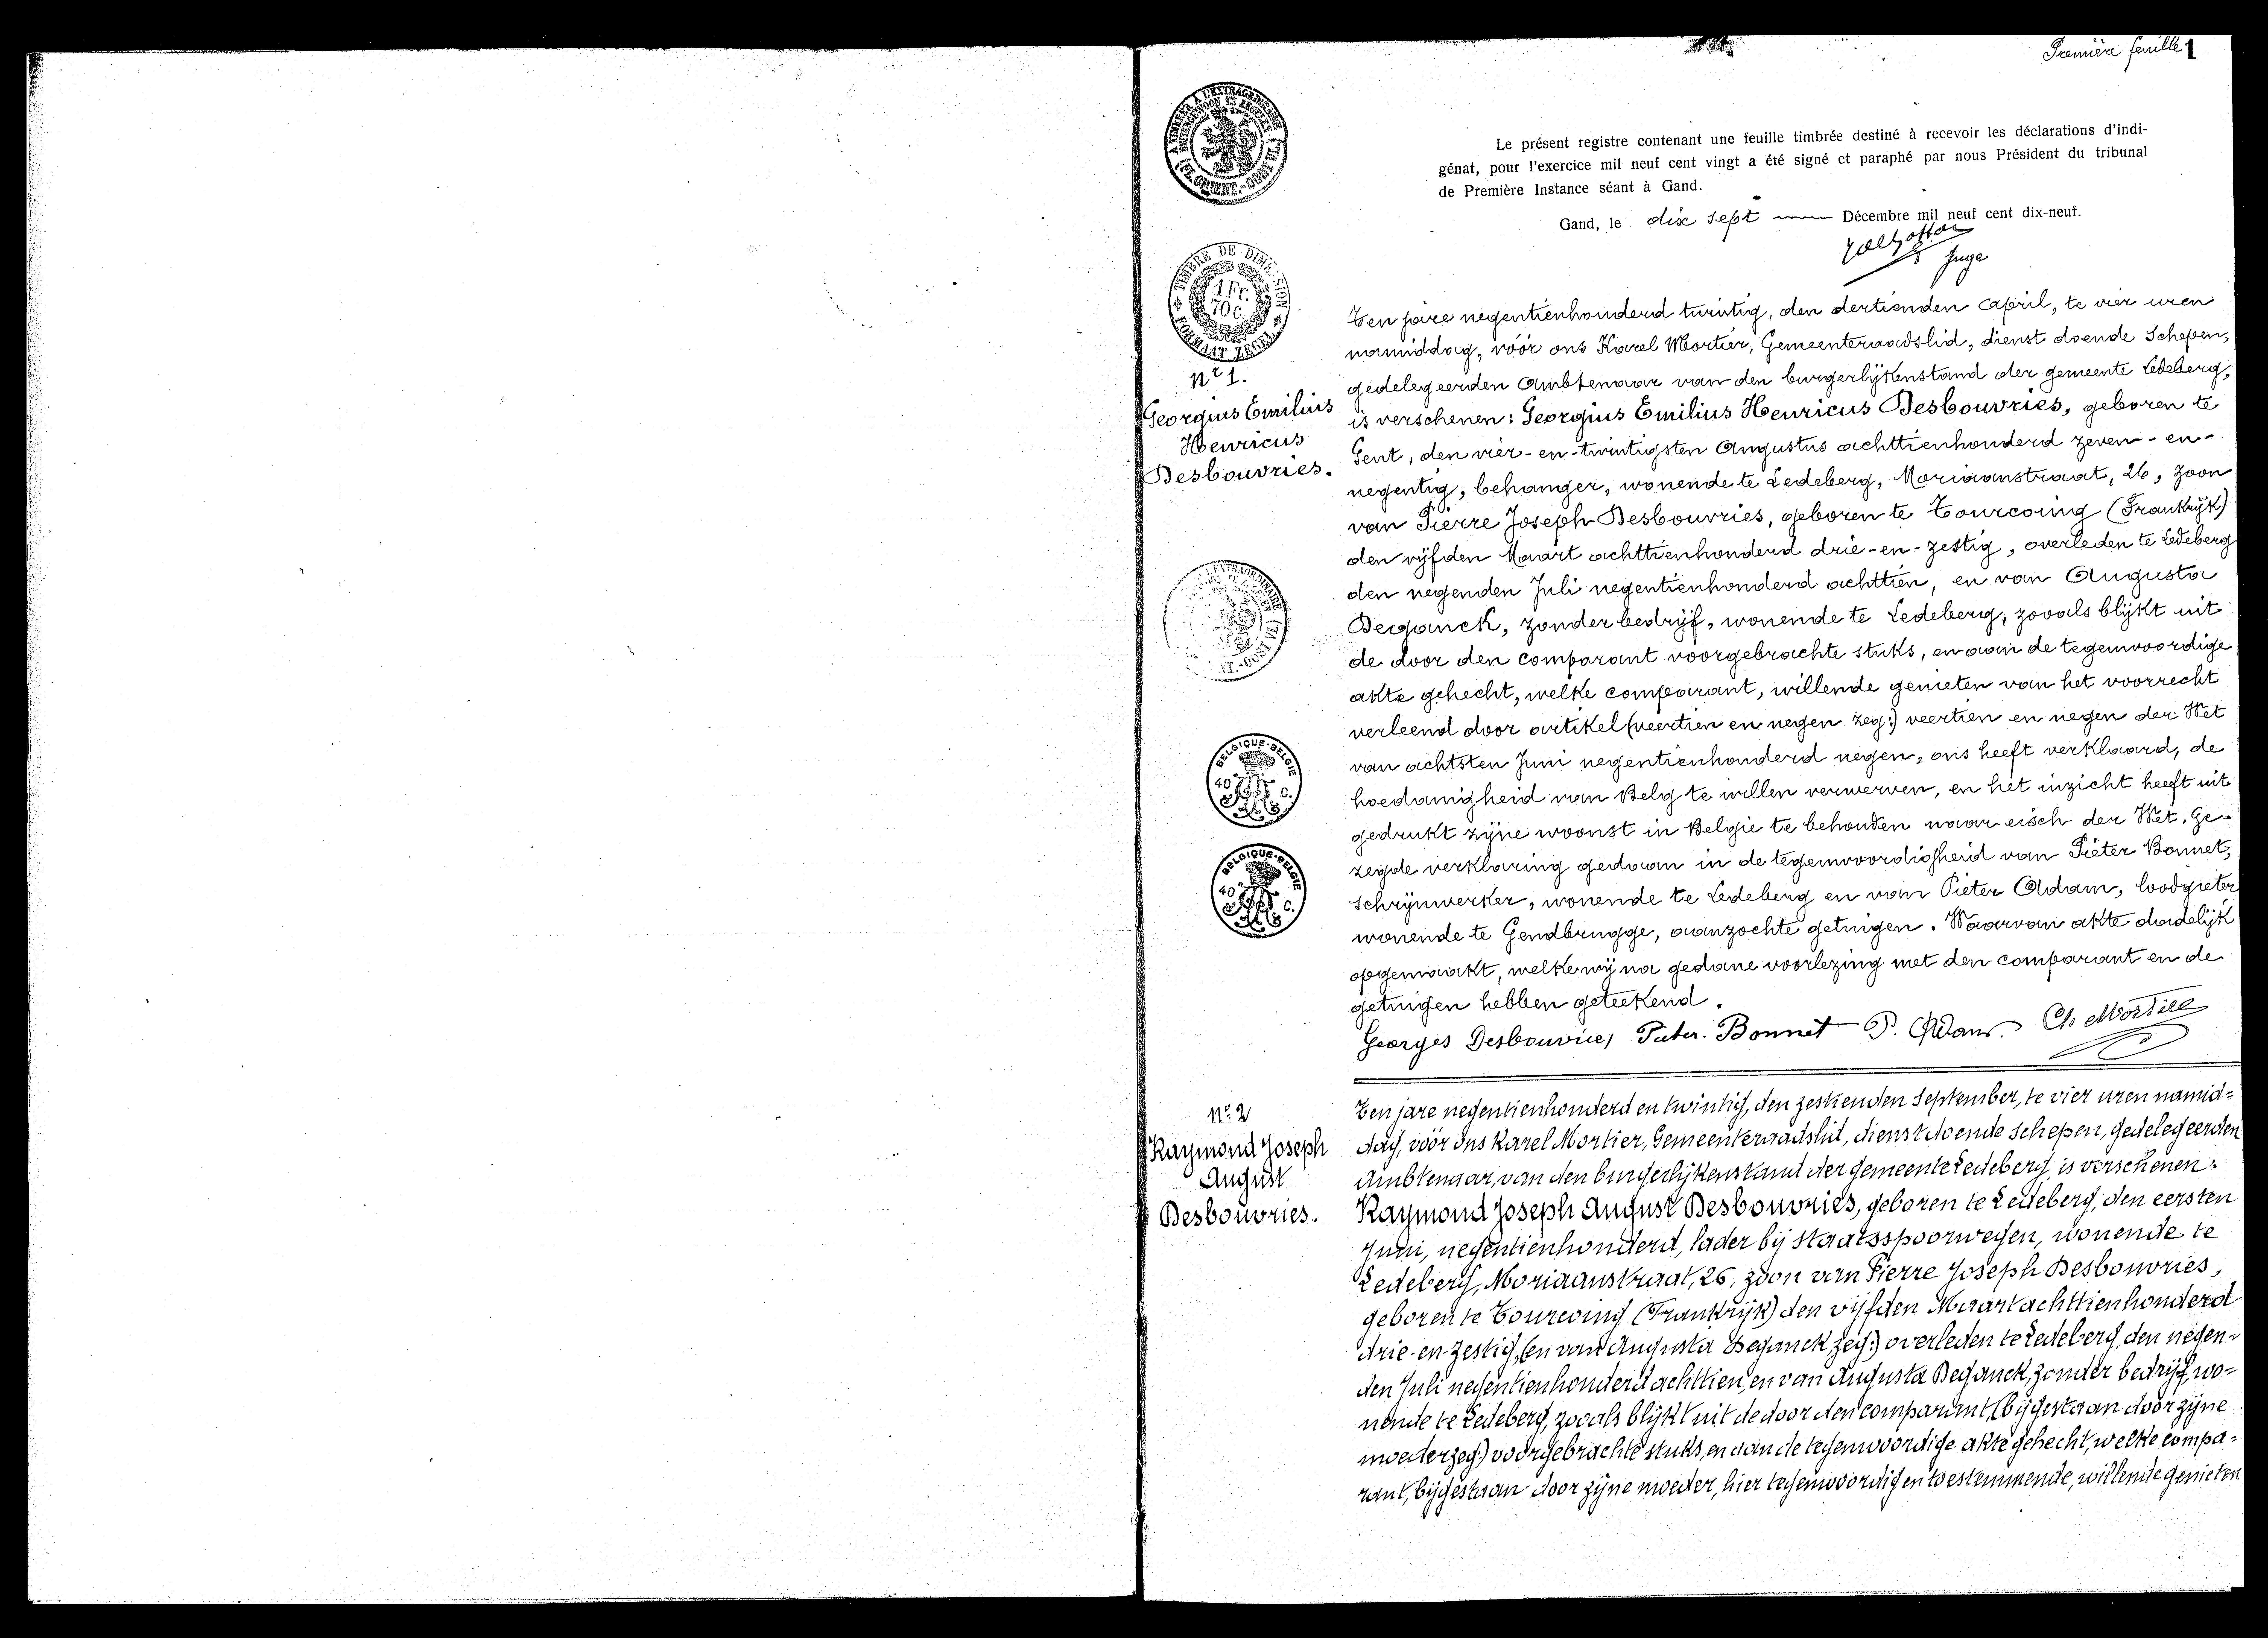 Première feuille 1
A TIMBRER A L'EXTRAORDINAIRE
BUITENGEWOON TE ZEGELEN
(FL. ORIENT.-OOST VL.)
Le présent registre contenant une feuille timbrée destiné à recevoir les déclarations d'indi-
génat, pour l'exercice mil neuf cent vingt a été signé et paraphé par nous Président du tribunal
de Première Instance séant à Gand.
Gand, le dix sept Décembre mil neuf cent dix-neuf.
Juge
TIMBRE DE DIMENSION
1 Fr.
70 C.
FORMAAT ZEGEL
Nr 1.
Georgius Emilius
Henricus
Desbouvries.
Ten jare negentienhonderd twintig, den dertienden April, te vier uren
namiddag, vóór ons Karel Mortier, Gemeenteraadslid, dienst doende Schepen,
gedelegeerden Ambtenaar van den burgerlijkenstand der gemeente Ledeberg,
is verschenen: Georgius Emilius Henricus Desbouvries, geboren te
Gent, den vier-en-twintigsten Augustus achttienhonderd zeven-en-
negentig, behanger, wonende te Ledeberg, Moriaanstraat, 26, zoon
van Pierre Joseph Desbouvries, geboren te Tourcoing (Frankrijk)
den vijfden Maart achttienhonderd drie-en-zestig, overleden te Ledeberg
den negenden Juli negentienhonderd achttien, en van Augusta
Deganck, zonder bedrijf, wonende te Ledeberg, zooals blijkt uit
de door den comparant voorgebrachte stuks, en aan de tegenwoordige
akte gehecht, welke comparant, willende genieten van het voorrecht
verleend door artikel (veertien en negen zeg:) veertien en negen der Wet
van achtsten Juni negentienhonderd negen, ons heeft verklaard, de
hoedanigheid van Belg te willen verwerven, en het inzicht heeft uit
gedrukt zijne woonst in België te behouden naar eisch der Wet. Ge-
zegde verklaring gedaan in de tegenwoordigheid van Pieter Bonnet,
schrijnwerker, wonende te Ledeberg en van Pieter Adam, loodgieter
wonende te Gendbrugge, aanzochte getuigen. Waarvan akte dadelijk
opgemaakt, welke wij na gedane voorlezing met den comparant en de
getuigen hebben geteekend.
Georges Desbouvries Pieter Bonnet P. Adam. Ch Mortier
BELGIQUE-BELGIE
40 C.
BELGIQUE-BELGIE
40 C.
Nr 2
Raymond Joseph
August
Desbouvries.
Ten jare negentienhonderd en twintig, den zestienden September, te vier uren namid=
dag, vóór ons Karel Mortier, Gemeenteraadslid, dienstdoende Schepen, gedelegeerden
Ambtenaar van den burgerlijkenstand der gemeente Ledeberg, is verschenen:
Raymond Joseph August Desbouvries, geboren te Ledeberg, den eersten
Juni, negentienhonderd, lader bij staatsspoorwegen, wonende te
Ledeberg, Moriaanstraat, 26, zoon van Pierre Joseph Desbouvries,
geboren te Tourcoing (Frankrijk) den vijfden Maart achttienhonderd
drie-en-zestig, (en van Augusta Deganck, zeg:) overleden te Ledeberg, den negen-
den Juli negentienhonderd achttien, en van Augusta Deganck, zonder bedrijf, wo=
nende te Ledeberg, zooals blijkt uit de door den comparant, (bijgestaan door zijne
moeder zeg:) voorgebrachte stuks, en aan de tegenwoordige akte gehecht, welke compa=
rant, bijgestaan door zijne moeder, hier tegenwoordig en toestemmende, willende genieten